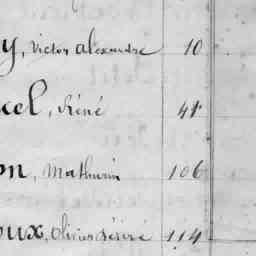 y, Victor alexandre 10
cel, Réné 41
on, Mathurin 106
oux, Olivier désiré 114